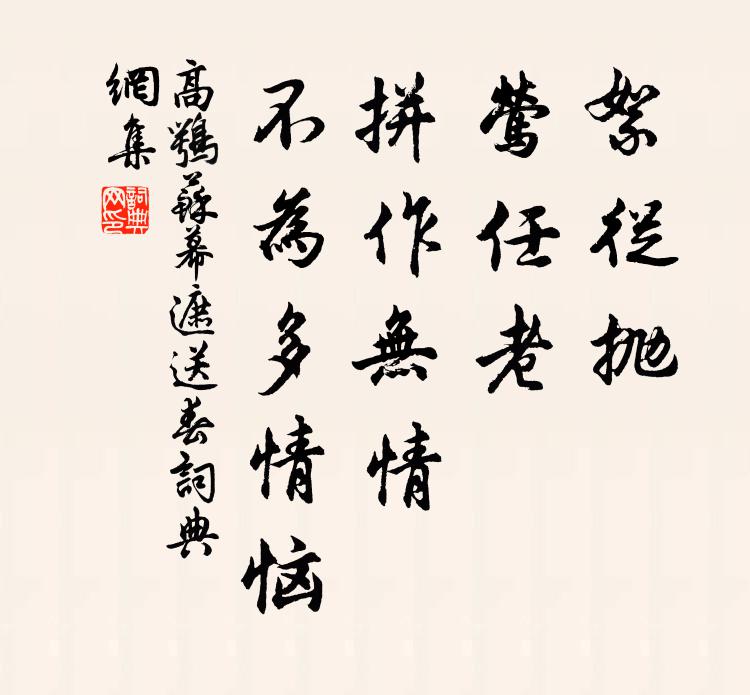 絮從拋
鶯任老
拼作無情
不為多情惱
高鶚蘇幕遮送春詞典
網集
詞典網印